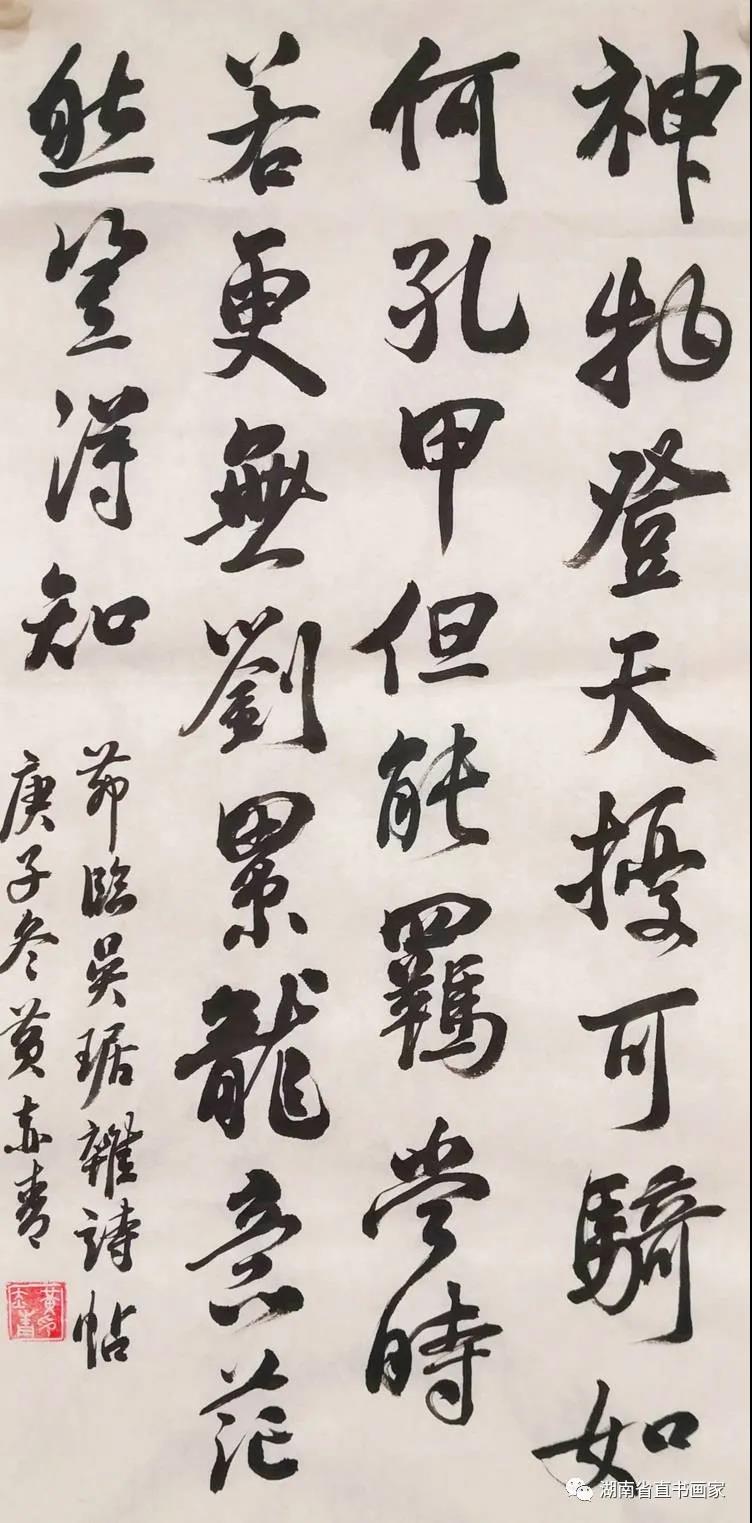 神物登天擾可騎如
何孔甲但能羈當時
若更無劉累龍意茫
然豈得知
節臨吳琚雜詩帖
庚子冬黃赤青
湖南省直书画家